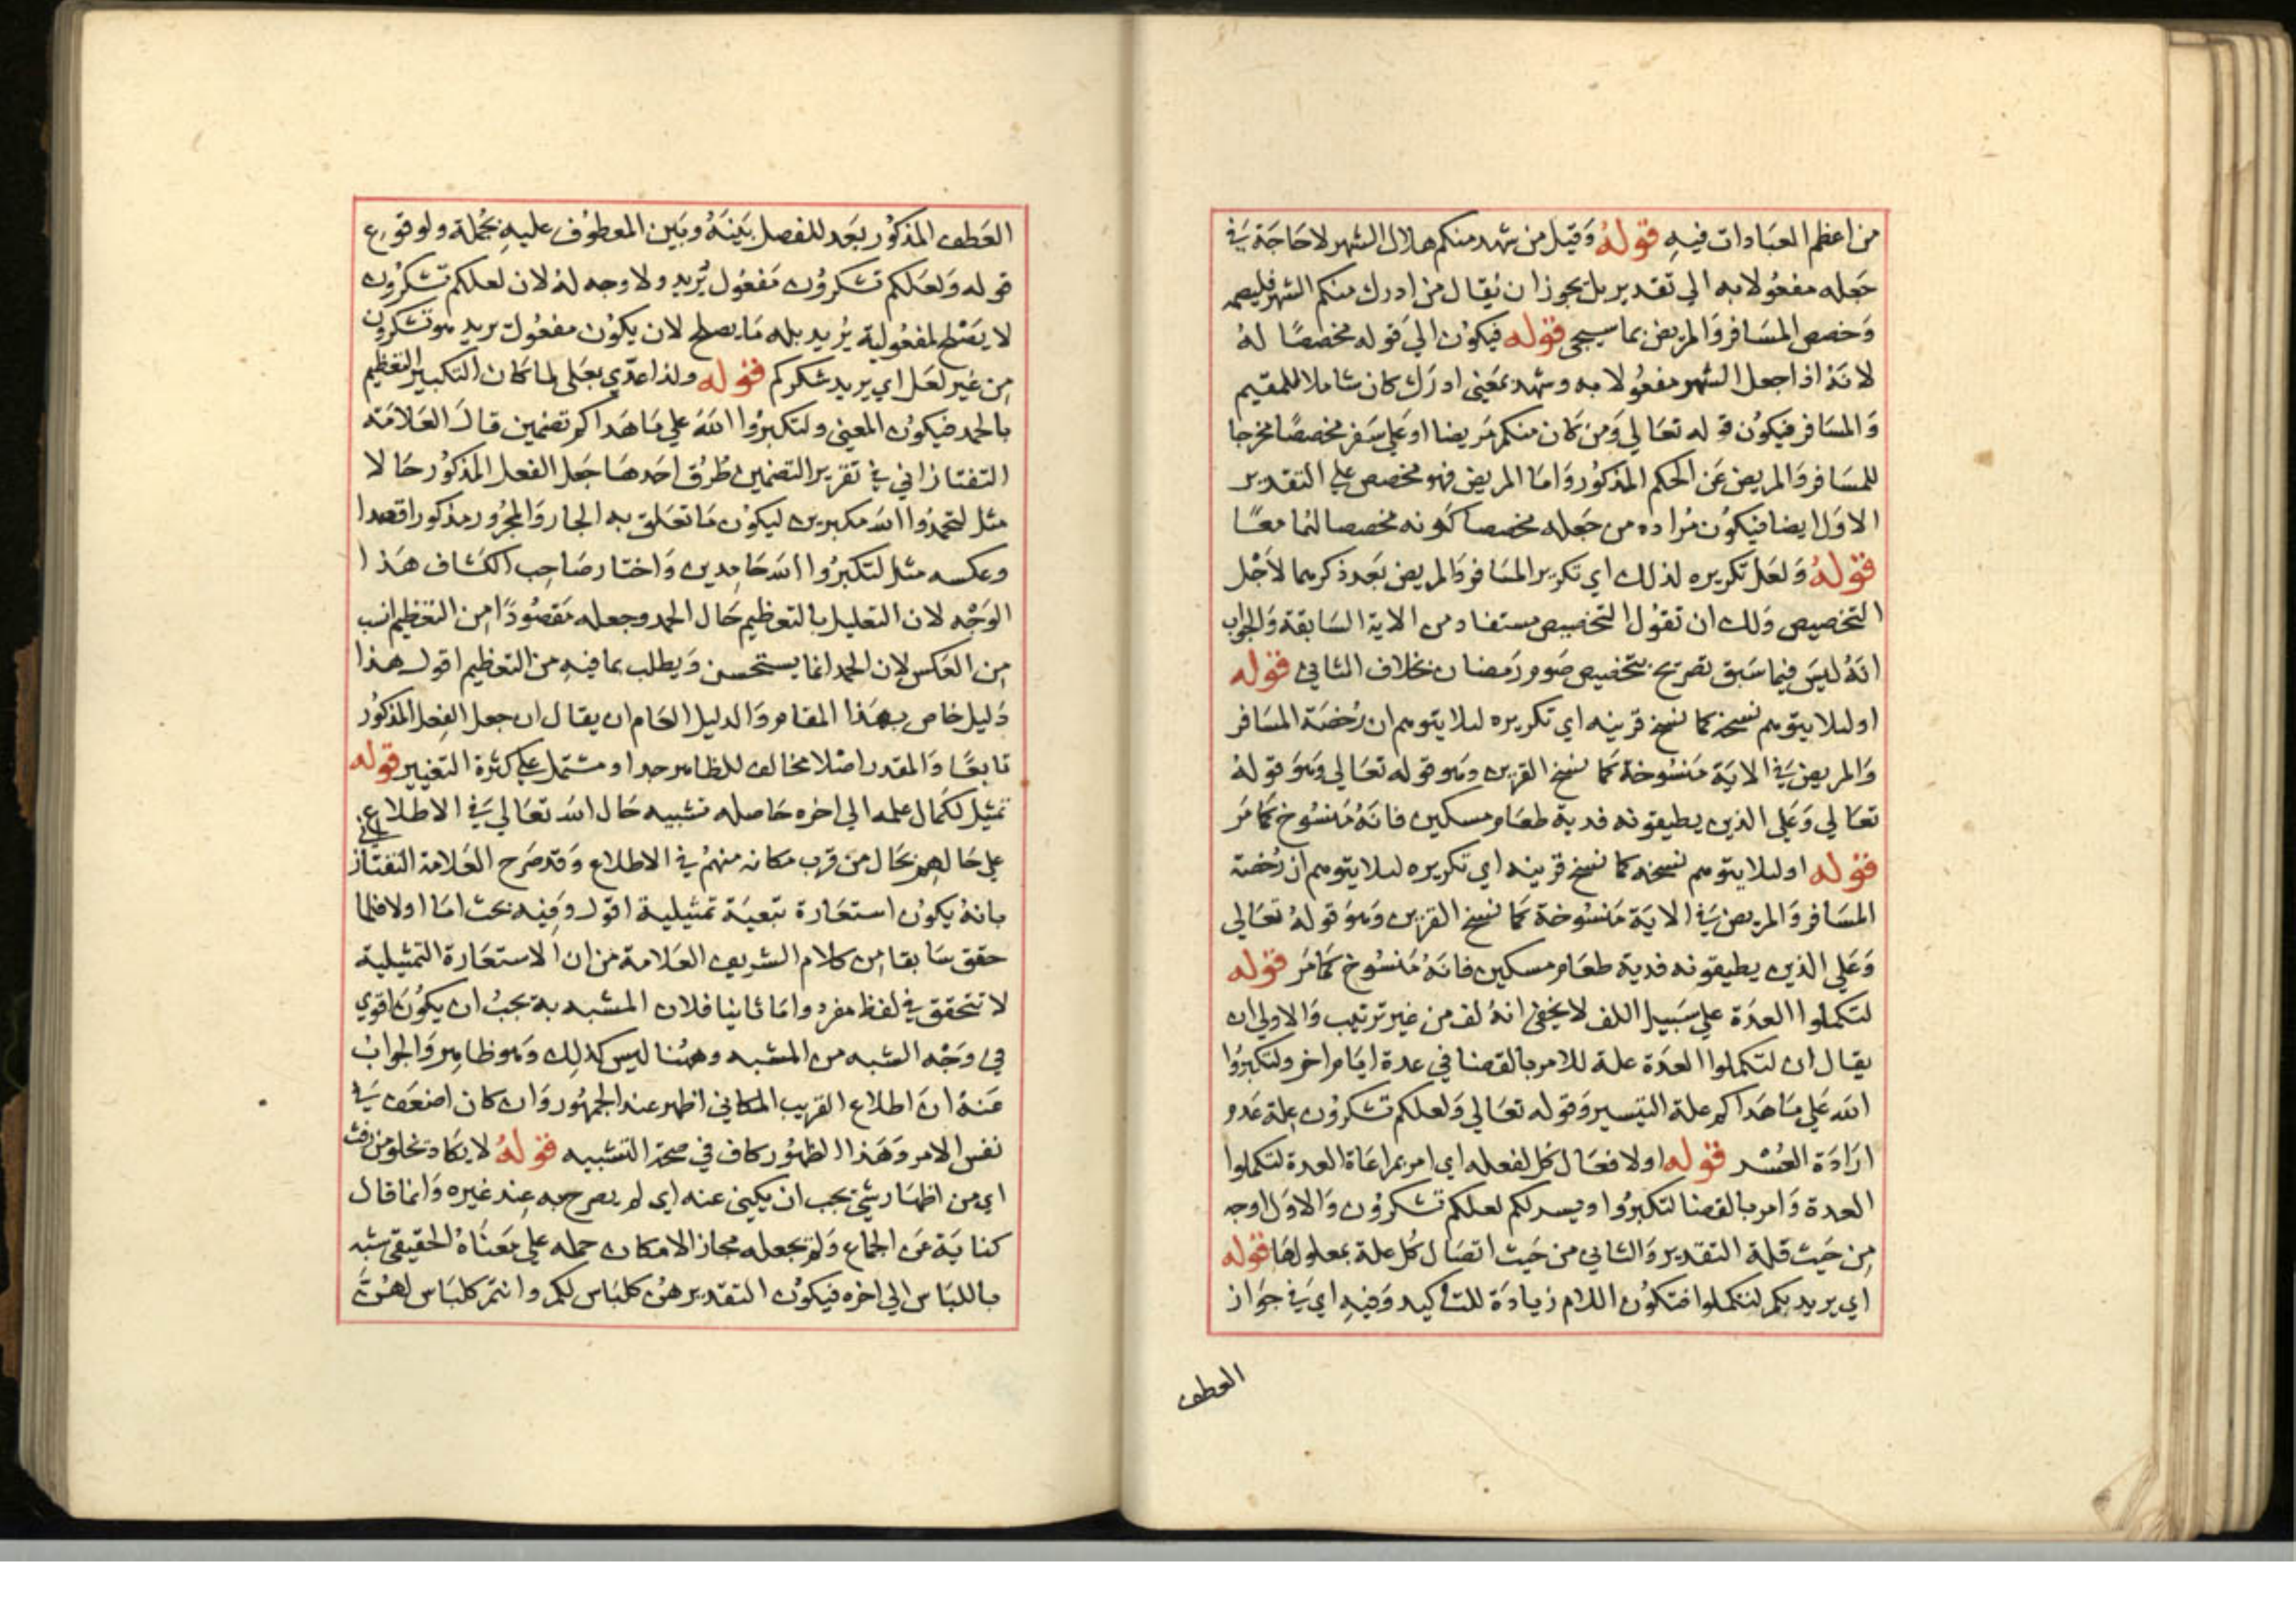 من اعظم العبادات فيه قوله وقيل من شهد منكم هلال الشهر لا حاجة في
جعله مفعولا به الي تقدير بل يجوز ان يقال من ادرك منكم الشهر فليصمه
وخصص المسافر والمريض بما سيجئ قوله فيكون الي قوله مخصصا له
لانه اذا جعل الشهر مفعولا به وشهد بمعني ادرك كان شاملا للمقيم
والمسافر فيكون قوله تعالي ومن كان منكم مريضا او علي سفر مخصصا مخرجا
للمسافر والمريض عن الحكم المذكور واما المريض فهو مخصص علي التقدير
الاول ايضا فيكون مراده من جعله مخصصا كونه مخصصا لهما معا
قوله ولعل تكريره لذلك اي تكرير المسافر والمريض بعد ذكرهما لاجل
التخصيص ولك ان تقول التخصيص مستفاد من الاية السابقة والجواب
انه ليس فيما سبق تصريح بتخصيص صوم رمضان بخلاف الثاني قوله
اوليلا يتوهم نسخه كما نسخ قرينه اي تكريره ليلا يتوهم ان رخصة المسافر
والمريض في الاية منسوخة كما نسخ القرين وهو قوله تعالي وهو قوله
تعالي وعلي الذين يطيقونه فدية طعام مسكين فانه منسوخ كما مر
قوله اوليلا يتوهم نسخه كما نسخ قرينه اي تكريره ليلا يتوهم ان رخصة
المسافر والمريض في الاية منسوخة كما نسخ القرين وهو قوله تعالي
وعلي الذين يطيقونه فدية طعام مسكين فانه منسوخ كما مر قوله
لتكملوا العدة علي سبيل اللف لا يخفي انه لف من غير ترتيب والاولي ان
يقال ان لتكملوا العدة علة للامر بالقضا في عدة ايام اخر ولتكبروا
الله علي ما هداكم علة التيسير وقوله تعالي ولعلكم تشكرون علة عدم
ارادة العسر قوله او لافعال كل لفعله اي امر بمراعاة العدة لتكملوا
العدة وامر بالقضا لتكبروا ويسر لكم لعلكم تشكرون والاول اوجه
من حيث قلة التقدير والثاني من حيث اتصال كل علة بمعلولها قوله
اي يريد بكم لتكملوا فتكون اللام زيادة للتاكيد وفيه اي في جواز
العطف
العطف المذكور بعد للفصل بينه وبين المعطوف عليه بجملة ولوقوع
قوله ولعلكم تشكرون مفعول يريد ولا وجه له لان لعلكم تشكرون
لا يصلح لمفعولية يريد بله ما يصلح لان يكون مفعول يريد هو تشكرون
من غير لعل اي يريد شكركم قوله ولذا عدي بعلي لما كان التكبير التعظيم
بالحمد فيكون المعني ولتكبروا الله علي ما هداكم تضمين قال العلامة
التفتازاني في تقرير التضمين طرق احدها جعل الفعل المذكور حالا
مثل لتحمدوا الله مكبرين ليكون ما تعلق به الجار والمجرور مذكورا قصدا
وعكسه مثل لتكبروا الله حامدين واختار صاحب الكشاف هذا
الوجه لان التعليل بالتعظيم حال الحمد وجعله مقصودا من التعظيم انسب
من العكس لان الحمد انما يستحسن ويطلب بما فيه من التعظيم اقول هذا
دليل خاص بهذا المقام والدليل العام ان يقال ان جعل الفعل المذكور
تابعا والمقدر اصلا مخالف للظاهر جدا ومشتمل علي كثرة التغيير قوله
تمثيل لكمال علمه الي اخره حاصله تشبيه حال الله تعالي في الاطلاع
علي حالهم بحال من قرب مكانه منهم في الاطلاع وقد صرح العلامة التفتازاني
بانه يكون استعارة تبعية تمثيلية اقول وفيه بحث اما اولا فلما
حقق سابقا من كلام الشريف العلامة من ان الاستعارة التمثيلية
لا تتحقق في لفظ مفرد واما ثانيا فلان المشبه به يجب ان يكون اقوي
في وجه الشبه من المشبه وههنا ليس كذلك وهو ظاهر والجواب
عنه ان اطلاع القريب المكاني اظهر عند الجمهور وان كان اضعف في
نفس الامر وهذا الظهور كاف في صحة التشبيه قوله لا يكاد تخلو من رفث
اي من اظهار شئ يجب ان يكني عنه اي لم يصرح به عند غيره وانما قال
كناية عن الجماع ولم يجعله مجازا لامكان حمله علي معناه الحقيقي شبه
باللباس الي اخره فيكون التقدير هن كلباس لكم وانتم كلباس لهن